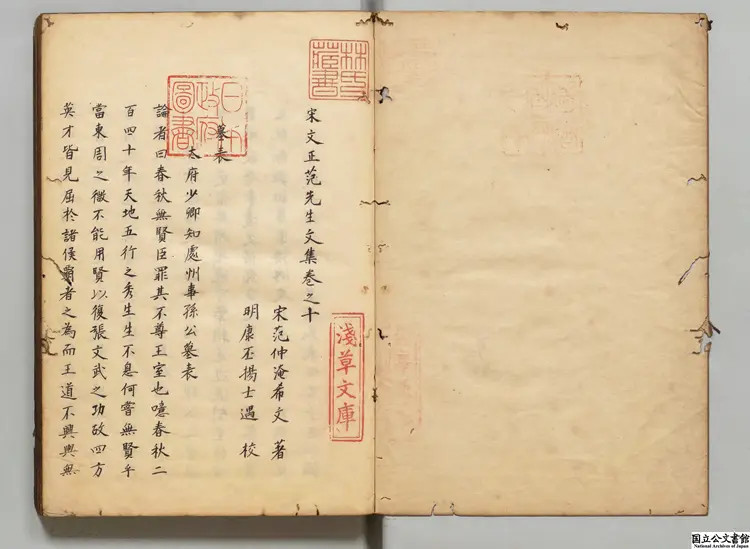 宋文正范先生文集卷之十
宋范仲淹希文 著
明康丕揚士遇 校
墓表
太府少卿知處州事孫公墓表
論者曰春秋無賢臣罪其不尊王室也噫春秋二
百四十年天地五行之秀生生不息何嘗無賢乎
當東周之微不能用賢以復張文武之功故四方
英才皆見屈於諸侯霸者之為而王道不興與無
林氏藏書
日本政府圖書
淺草文庫
国立公文書館
National Archives of Japan